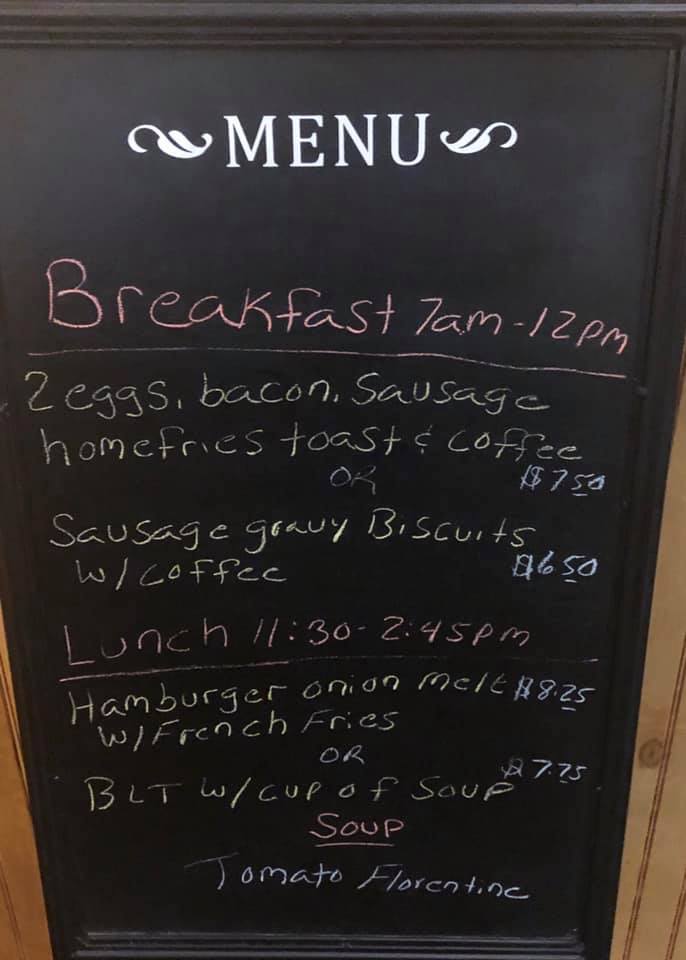 MENU
Breakfast 7am-12pm
2 eggs, bacon, Sausage
homefries toast & coffee
OR $7.50
Sausage gravy Biscuits
w/coffee $6.50
Lunch 11:30-2:45pm
Hamburger onion melt $8.25
w/French Fries
OR
$7.75
BLT w/cup of Soup
Soup
Tomato Florentine